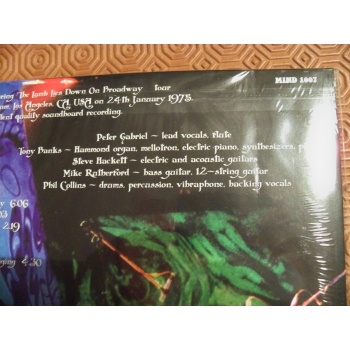 ring The Lamb Lies Down On Broadway tour
Los Angeles, CA, USA on 24th January 1975.
quality soundboard recording.
MIND 1007
Peter Gabriel ~ lead vocals, flute
Tony Banks ~ Hammond organ, mellotron, electric piano, synthesizers,
Steve Hackett ~ electric and acoustic guitars
Mike Rutherford ~ bass guitar, 12~string guitar
Phil Collins ~ drums, percussion, vibraphone, backing vocals
y 6:06
2:19
4:30